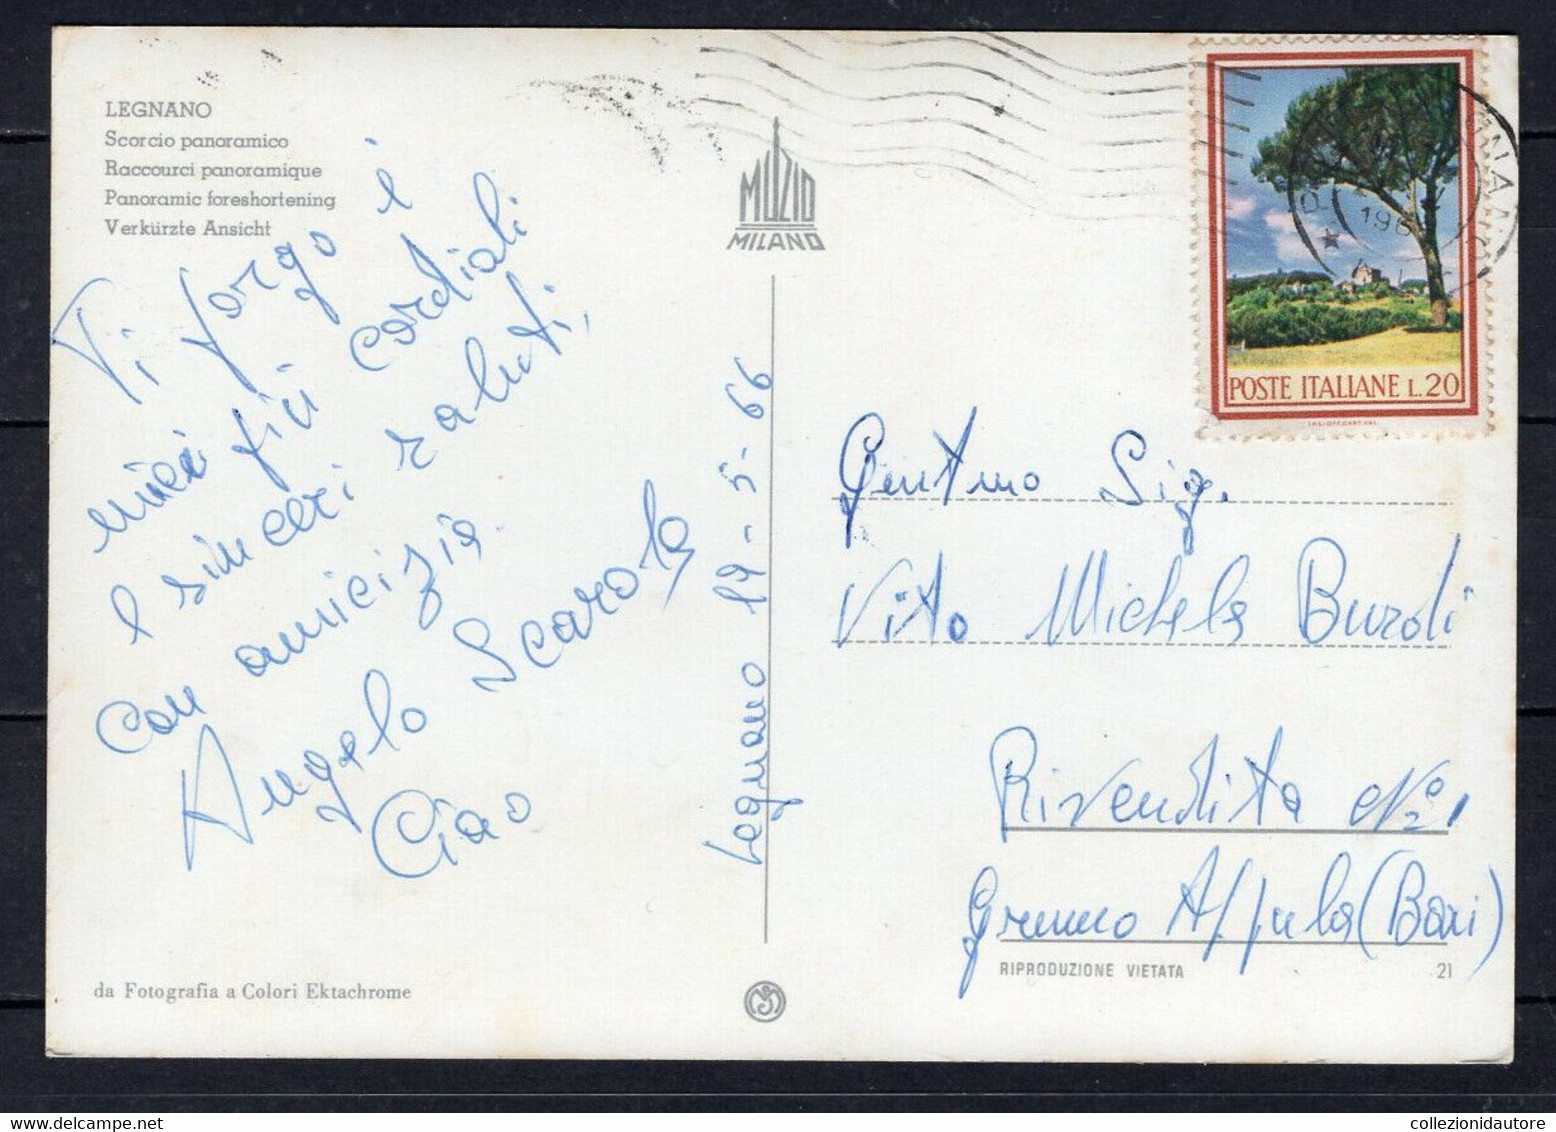 LEGNANO
Scorcio panoramico
Raccourci panoramique
Panoramic foreshortening
Verkürzte Ansicht
Ti porgo i
miei più cordiali
e sinceri saluti,
con amicizia.
Angelo Scarola
Ciao
da Fotografia a Colori Ektachrome
MUZIO
MILANO
Legnano 19-5-66
POSTE ITALIANE L.20
I.P.S.-OFF.CART.VAL.
196
Gentmo Sig.
Vito Michele Buroli
Rivendita No 1
Grumo Appula (Bari)
RIPRODUZIONE VIETATA
21
collezionidautore